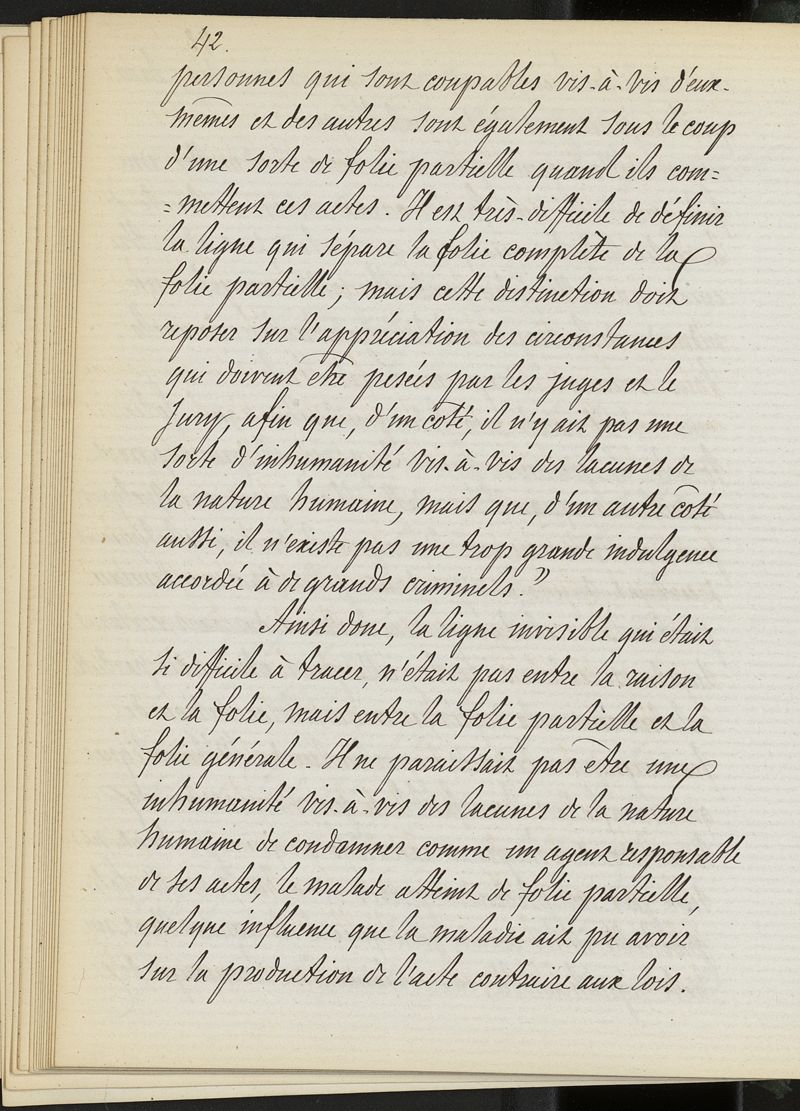 42.
personnes qui sont coupables vis-à-vis d'eux-
mêmes et des autres sont également sous le coup
d'une sorte de folie partielle quand ils com=
=mettent ces actes. Il est très-difficile de définir
la ligne qui sépare la folie complète de la
folie partielle ; mais cette distinction doit
reposer sur l'appréciation des circonstances
qui doivent être pesées par les juges et le
Jury, afin que, d'un coté, il n'y ait pas une
sorte d'inhumanité vis-à-vis des lacunes de
la nature humaine, mais que, d'un autre coté
aussi, il n'existe pas une trop grande indulgence
accordée à de grands criminels."
Ainsi donc, la ligne invisible qui était
si difficile à tracer, n'était pas entre la raison
et la folie, mais entre la folie partielle et la
folie générale. Il ne paraissait pas être une
inhumanité vis-à-vis des lacunes de la nature
humaine de condamner comme un agent responsable
de ses actes, le malade atteint de folie partielle,
quelque influence que la maladie ait pu avoir
sur la production de l'acte contraire aux lois.